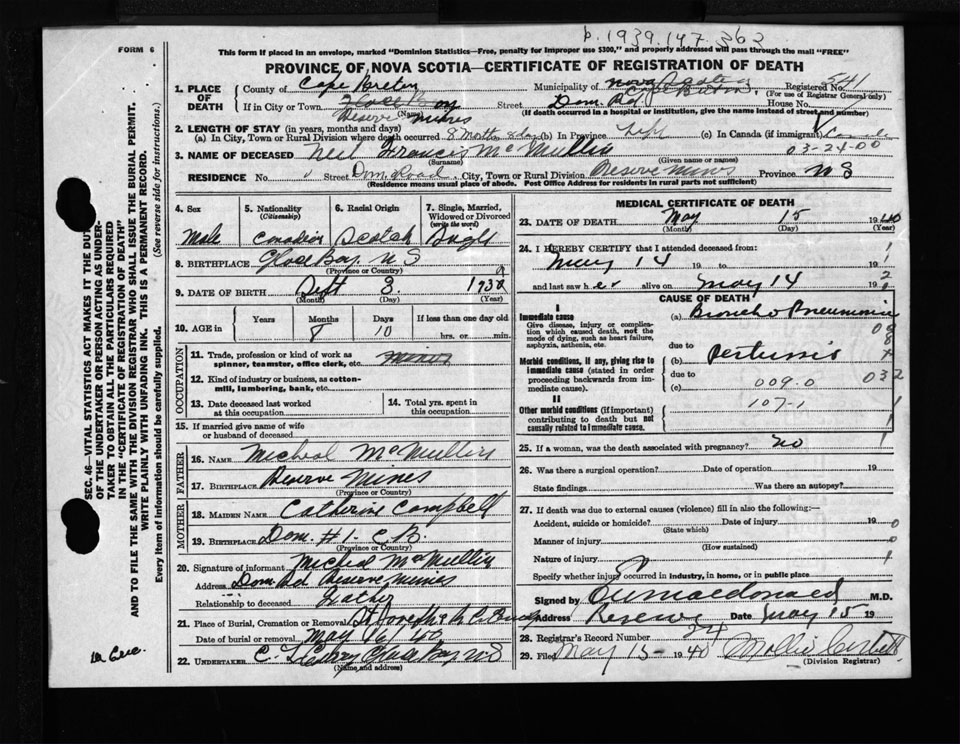 p. 1939.147.362
FORM 6
This form if placed in an envelope, marked "Dominion Statistics—Free, penalty for improper use $300," and properly addressed will pass through the mail "FREE"
PROVINCE OF NOVA SCOTIA—CERTIFICATE OF REGISTRATION OF DEATH
1. PLACE OF DEATH
County of Cape Breton
Municipality of Nova Scotia Cape Breton
Registered No. 541
(For use of Registrar General only)
If in City or Town Glace Bay Reserve Mines
(Name)
Street Dom. Rd. House No.
(If death occurred in a hospital or institution, give the name instead of street)
2. LENGTH OF STAY (in years, months and days)
(a) In City, Town or Rural Division where death occurred 8 Months 8 days (b) In Province Life (c) In Canada (if immigrant)
3. NAME OF DECEASED Neil Francis McMullin 03-24-00
(Surname) (Given name or names)
RESIDENCE No. " Street Dom. Road City, Town or Rural Division Reserve Mines Province N S
(Residence means usual place of abode. Post Office Address for residents in rural parts not sufficient)
4. Sex Male
5. Nationality (Citizenship) Canadian
6. Racial Origin Scotch
7. Single, Married, Widowed or Divorced (write the word) Single
8. BIRTHPLACE Glace Bay N S
(Province or Country)
9. DATE OF BIRTH Sept 3. 1939
(Month) (Day) (Year)
10. AGE in Years Months Days If less than one day old
8 10 hrs. or min.
OCCUPATION
11. Trade, profession or kind of work as spinner, teamster, office clerk, etc.
12. Kind of industry or business, as cotton-mill, lumbering, bank, etc.
13. Date deceased last worked at this occupation
14. Total yrs. spent in this occupation
15. If married give name of wife or husband of deceased
FATHER
16. NAME Micheal McMullin
17. BIRTHPLACE Reserve Mines
(Province or Country)
MOTHER
18. MAIDEN NAME Catherine Campbell
19. BIRTHPLACE Dom. #1- C B.
(Province or Country)
20. Signature of informant Micheal McMullin
Address Dom Rd Reserve Mines
Relationship to deceased Father
21. Place of Burial, Cremation or Removal St Joseph's R C
Date of burial or removal May 16/40
22. UNDERTAKER Glace Bay N S
(Name and address)
MEDICAL CERTIFICATE OF DEATH
23. DATE OF DEATH May 15 1940
(Month) (Day) (Year)
24. I HEREBY CERTIFY that I attended deceased from:
May 14 19 to 19
and last saw her alive on May 14 19
CAUSE OF DEATH
I
Immediate cause
Give disease, injury or complication which caused death, not the mode of dying, such as heart failure, asphyxia, asthenia, etc.
(a) Broncho Pneumonia
due to
Morbid conditions, if any, giving rise to immediate cause (stated in order proceeding backwards from immediate cause).
(b) Pertussis
due to
(c) 009.0 032
107-1
II
Other morbid conditions (if important) contributing to death but not causally related to immediate cause.
25. If a woman, was the death associated with pregnancy? no
26. Was there a surgical operation? Date of operation 19
State findings Was there an autopsy?
27. If death was due to external causes (violence) fill in also the following:—
Accident, suicide or homicide? Date of injury 19
(State which)
Manner of injury
(How sustained)
Nature of injury
Specify whether injury occurred in industry, in home, or in public place
Signed by Macdonald M.D.
Address Reserve Date May 15 19
28. Registrar's Record Number 24
29. Filed May 15- 1940 Mollie Corbett
(Division Registrar)
SEC. 46—VITAL STATISTICS ACT MAKES IT THE DUTY
OF THE UNDERTAKER OR PERSON ACTING AS UNDER-
TAKER TO OBTAIN ALL THE PARTICULARS REQUIRED
IN THE "CERTIFICATE OF REGISTRATION OF DEATH"
AND TO FILE THE SAME WITH THE DIVISION REGISTRAR WHO SHALL ISSUE THE BURIAL PERMIT.
WRITE PLAINLY WITH UNFADING INK. THIS IS A PERMANENT RECORD.
Every item of information should be carefully supplied. (See reverse side for instructions.)